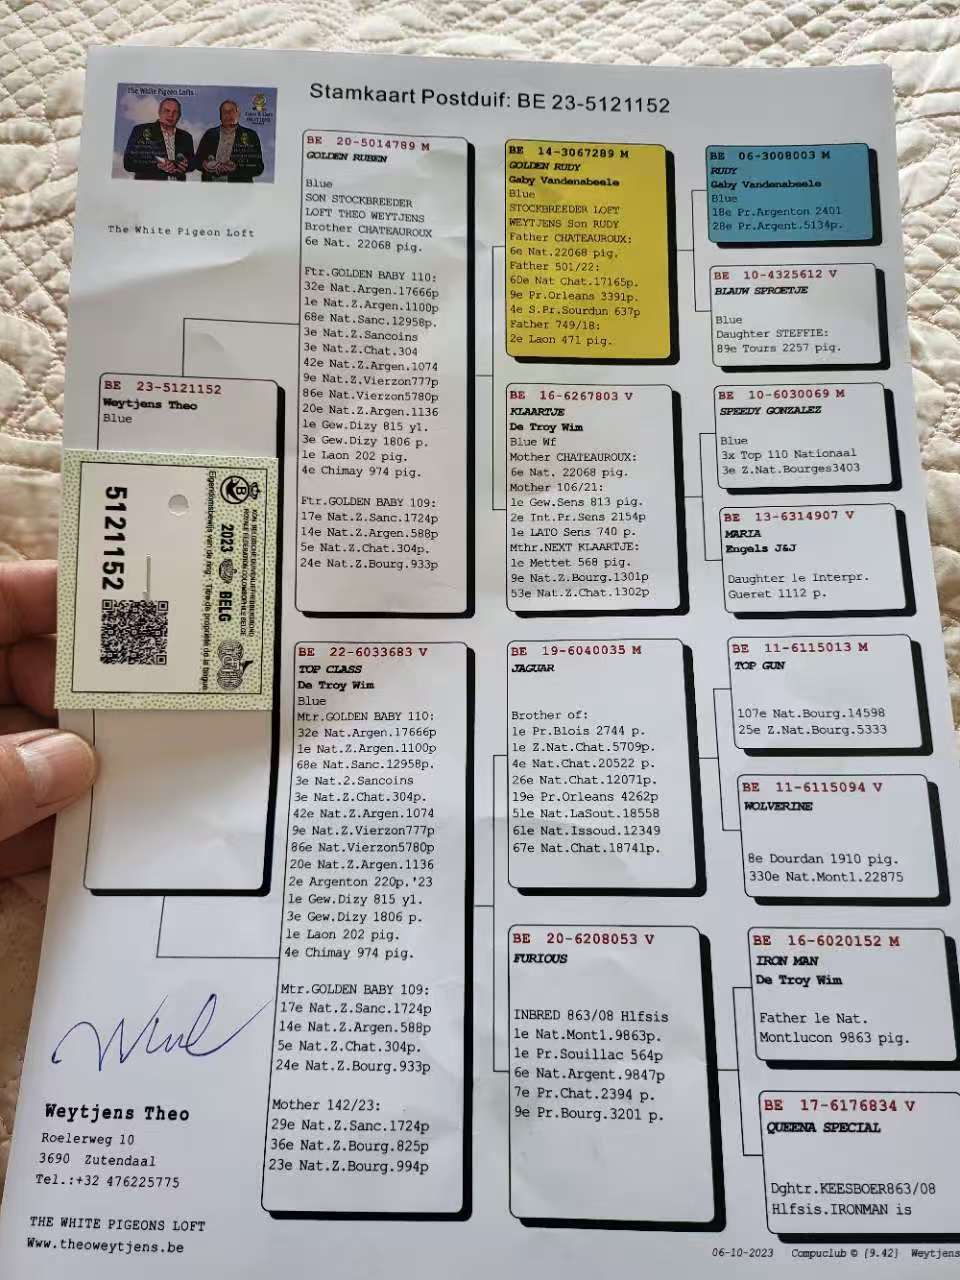 The White Pigeon Lofts
Stamkaart Postduif: BE 23-5121152
The White Pigeon Loft
BE 23-5121152
Weytjens Theo
Blue
5121152
Eigendomsbewijs van de ring - Titre de propriété de la bague
2023 BELG
BE 20-5014789 M
GOLDEN RUBEN
Blue
SON STOCKBREEDER
LOFT THEO WEYTJENS
Brother CHATEAUROUX
6e Nat. 22068 pig.
Ftr.GOLDEN BABY 110:
32e Nat.Argen.17666p
1e Nat.Z.Argen.1100p
68e Nat.Sanc.12958p.
3e Nat.Z.Sancoins
3e Nat.Z.Chat.304
42e Nat.Z.Argen.1074
9e Nat.Z.Vierzon777p
86e Nat.Vierzon5780p
20e Nat.Z.Argen.1136
1e Gew.Dizy 815 yl.
3e Gew.Dizy 1806 p.
1e Laon 202 pig.
4e Chimay 974 pig.
Ftr.GOLDEN BABY 109:
17e Nat.Z.Sanc.1724p
14e Nat.Z.Argen.588p
5e Nat.Z.Chat.304p.
24e Nat.Z.Bourg.933p
BE 22-6033683 V
TOP CLASS
De Troy Wim
Blue
Mtr.GOLDEN BABY 110:
32e Nat.Argen.17666p
1e Nat.Z.Argen.1100p
68e Nat.Sanc.12958p.
3e Nat.2.Sancoins
3e Nat.Z.Chat.304p.
42e Nat.Z.Argen.1074
9e Nat.Z.Vierzon777p
86e Nat.Vierzon5780p
20e Nat.Z.Argen.1136
2e Argenton 220p.'23
1e Gew.Dizy 815 yl.
3e Gew.Dizy 1806 p.
1e Laon 202 pig.
4e Chimay 974 pig.
Mtr.GOLDEN BABY 109:
17e Nat.Z.Sanc.1724p
14e Nat.Z.Argen.588p
5e Nat.Z.Chat.304p.
24e Nat.Z.Bourg.933p
Mother 142/23:
29e Nat.Z.Sanc.1724p
36e Nat.Z.Bourg.825p
23e Nat.Z.Bourg.994p
BE 14-3067289 M
GOLDEN RUDY
Gaby Vandenabeele
Blue
STOCKBREEDER LOFT
WEYTJENS Son RUDY
Father CHATEAUROUX:
6e Nat.22068 pig.
Father 501/22:
60e Nat Chat.17165p.
9e Pr.Orleans 3391p.
4e S.Pr.Sourdun 637p
Father 749/18:
2e Laon 471 pig.
BE 16-6267803 V
KLAARTJE
De Troy Wim
Blue Wf
Mother CHATEAUROUX:
6e Nat. 22068 pig.
Mother 106/21:
1e Gew.Sens 813 pig.
2e Int.Pr.Sens 2154p
1e LATO Sens 740 p.
Mthr.NEXT KLAARTJE:
1e Mettet 568 pig.
9e Nat.Z.Bourg.1301p
53e Nat.Z.Chat.1302p
BE 19-6040035 M
JAGUAR
Brother of:
1e Pr.Blois 2744 p.
1e Z.Nat.Chat.5709p.
4e Nat.Chat.20522 p.
26e Nat.Chat.12071p.
19e Pr.Orleans 4262p
51e Nat.LaSout.18558
61e Nat.Issoud.12349
67e Nat.Chat.18741p.
BE 20-6208053 V
FURIOUS
INBRED 863/08 Hlfsis
1e Nat.Montl.9863p.
1e Pr.Souillac 564p
6e Nat.Argent.9847p
7e Pr.Chat.2394 p.
9e Pr.Bourg.3201 p.
BE 06-3008003 M
RUDY
Gaby Vandenabeele
Blue
18e Pr.Argenton 2401
28e Pr.Argent.5134p.
BE 10-4325612 V
BLAUW SPROETJE
Blue
Daughter STEFFIE:
89e Tours 2257 pig.
BE 10-6030069 M
SPEEDY GONZALEZ
Blue
3x Top 110 Nationaal
3e Z.Nat.Bourges3403
BE 13-6314907 V
MARIA
Engels J&J
Daughter 1e Interpr.
Gueret 1112 p.
BE 11-6115013 M
TOP GUN
107e Nat.Bourg.14598
25e Z.Nat.Bourg.5333
BE 11-6115094 V
WOLVERINE
8e Dourdan 1910 pig.
330e Nat.Montl.22875
BE 16-6020152 M
IRON MAN
De Troy Wim
Father 1e Nat.
Montlucon 9863 pig.
BE 17-6176834 V
QUEENA SPECIAL
Dghtr.KEESBOER863/08
Hlfsis.IRONMAN is
Weytjens Theo
Roelerweg 10
3690 Zutendaal
Tel.:+32 476225775
THE WHITE PIGEONS LOFT
Www.theoweytjens.be
06-10-2023 Compuclub © [9.42] Weytjens